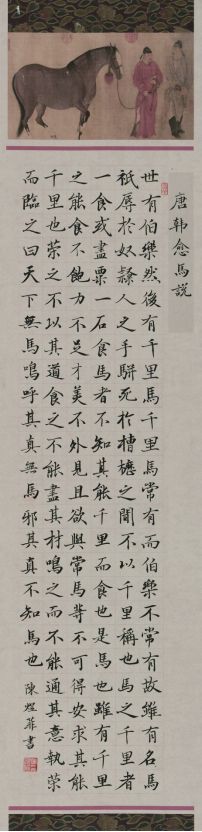 唐韓愈馬說
世有伯樂然後有千里馬千里馬常有而伯樂不常有故雖有名馬
祇辱於奴隸人之手駢死於槽櫪之間不以千里稱也馬之千里者
一食或盡粟一石食馬者不知其能千里而食也是馬也雖有千里
之能食不飽力不足才美不外見且欲與常馬等不可得安求其能
千里也策之不以其道食之不能盡其材鳴之而不能通其意執策
而臨之曰天下無馬嗚呼其真無馬邪其真不知馬也 陳煜菲書